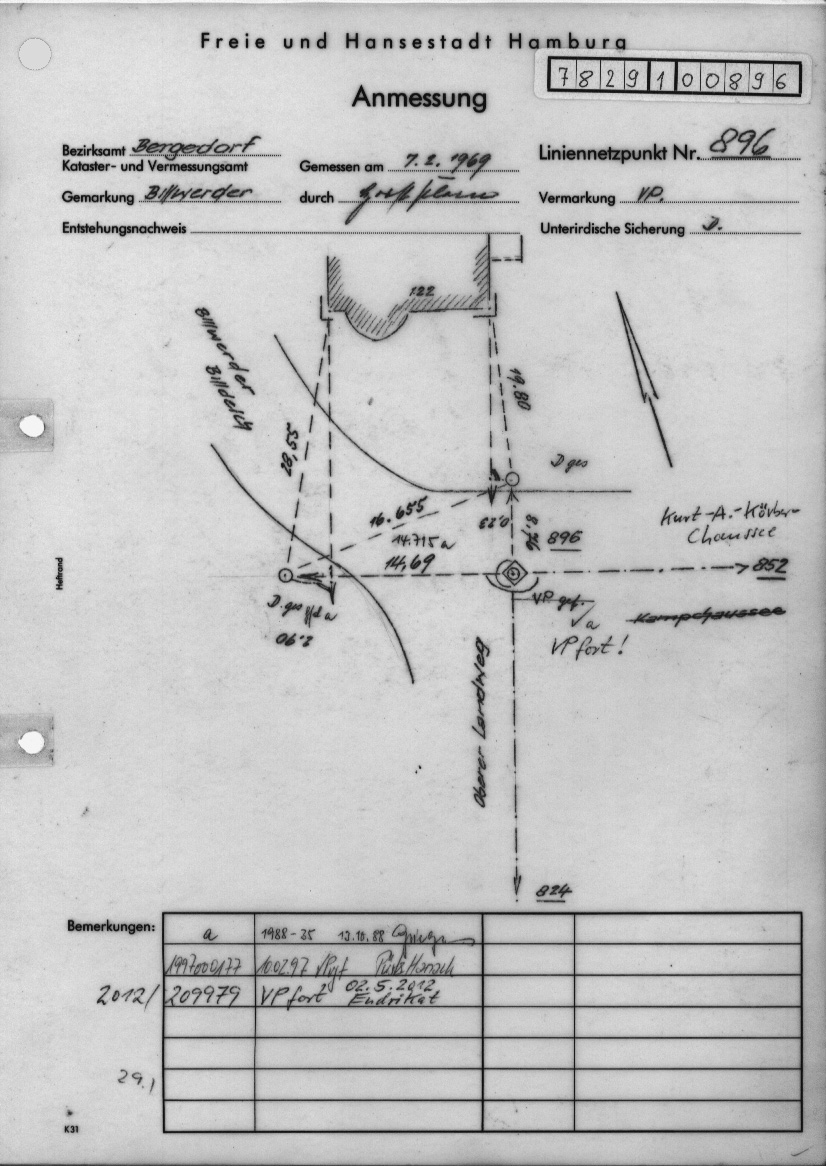 Freie und Hansestadt Hamburg
78291 00896
Anmessung
Bezirksamt Bergedorf
Kataster- und Vermessungsamt
Gemessen am 7.2.1969
Liniennetzpunkt Nr. 896
Gemarkung Billwerder
durch
Vermarkung VP.
Entstehungsnachweis
Unterirdische Sicherung D.
122
Billwerder
Billdeich
19.80
28,55
D ges
16.655
0.23
8.76
896
Kurt-A.-Körber-
Chaussee
14.715 a
14,69
852
D. ges
a
2.90
VP gef.
√ a
VP fort!
Kampchaussee
Oberer Landweg
824
Heftrand
Bemerkungen:
a 1988-35 13.10.88
1997000177 100297 VP gf
2012/ 209979 VP fort 02.5.2012
Endrikat
29.1
K31